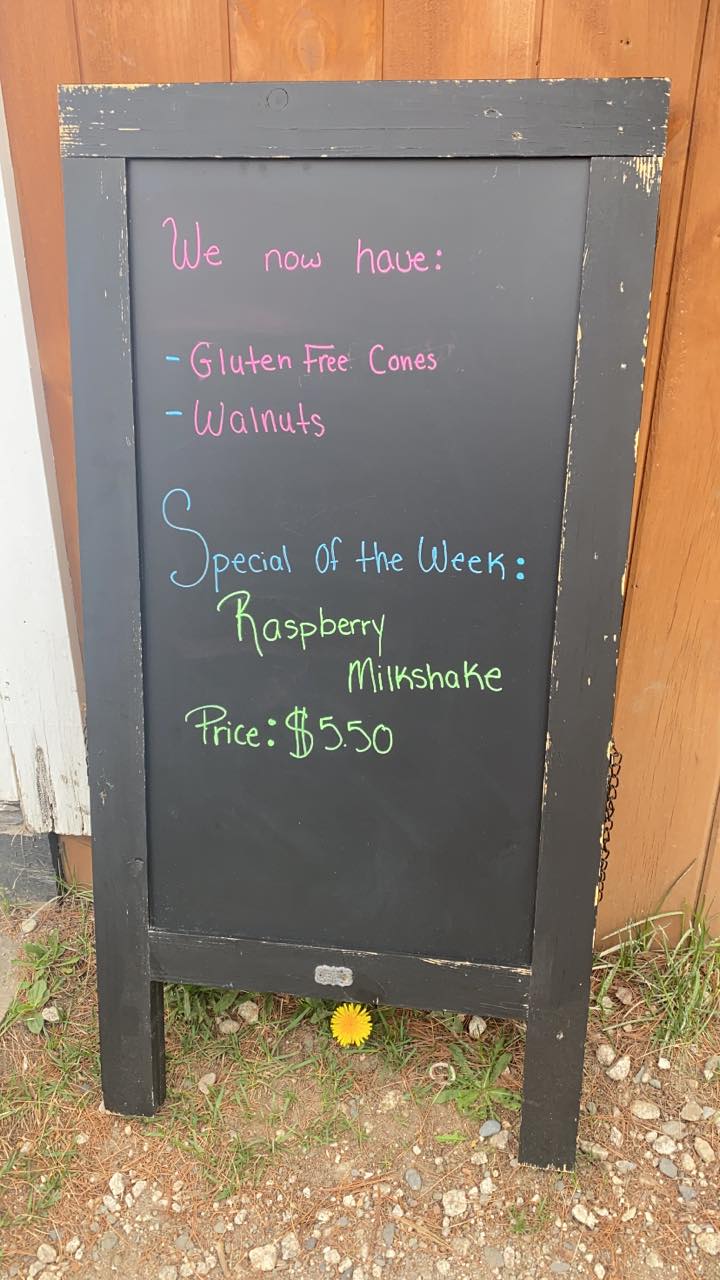 We now have:
- Gluten Free Cones
- Walnuts
Special Of the Week:
Raspberry
Milkshake
Price: $5.50